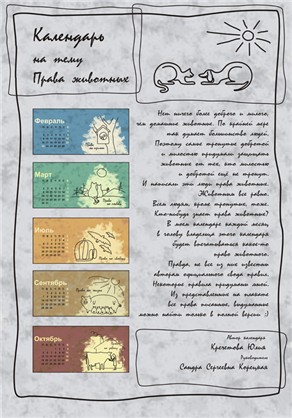 Календарь
на тему
Права животных
Февраль
Март
Июль
Сентябрь
Октябрь
Нет ничего более доброго и милого,
чем домашние животные. По крайней мере
так думает большинство людей.
Поэтому самые трепучие добротой
и милостью придумали защищать
животные от тех, кто милостью
и добротой ещё не тронут.
И написали эти люди права животных.
Животные все равно.
Всем людям, кроме трепучих, тоже.
Кто-нибудь знает права животных?
В моем календаре каждый месяц
в голову владельца этого календаря
будет впечатываться какое-то
право животного.
Правда, не все из них известны
авторам официального свода правил.
Некоторые правила придуманы мной.
Из представленных на плакате
все права писанные, выдуманные
можно найти только в полной версии :)
Автор календаря
Кречетова Юлия
Руководитель
Сандра Сергеевна Корецкая